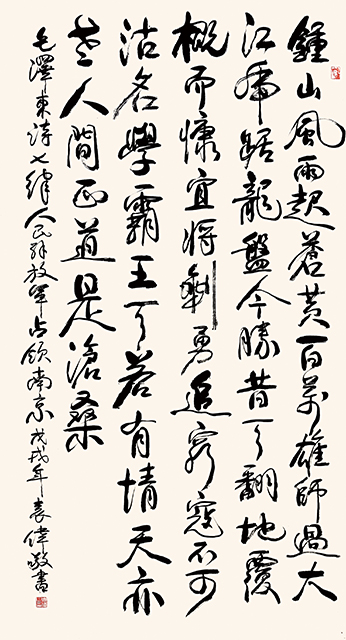 鍾山風雨起蒼黄百萬雄師過大
江虎踞龍盤今勝昔天翻地覆
概而慷宜將剩勇追窮寇不可
沽名學霸王天若有情天亦
老人間正道是滄桑
毛澤東詩七律人民解放軍占領南京戊戌年袁偉敬書